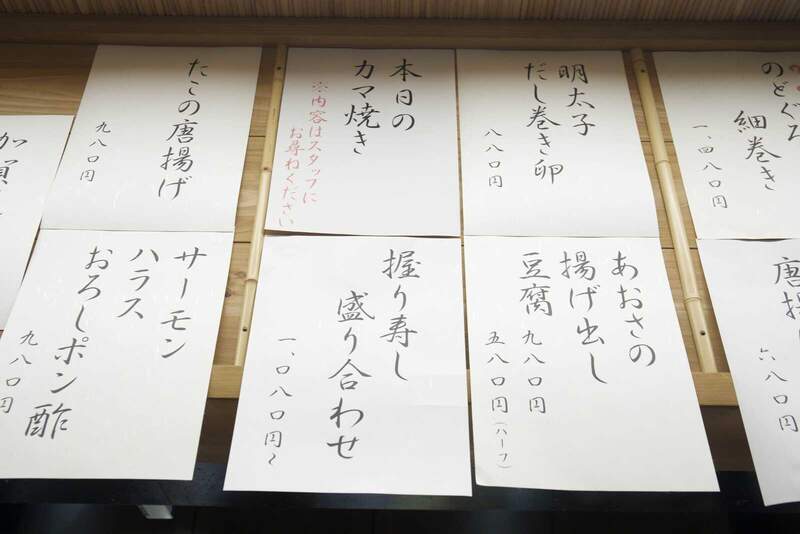 のどぐろ
細巻き
一、四八〇円
明太子
だし巻き卵
八八〇円
本日の
カマ焼き
※内容はスタッフに
お尋ねください
たこの唐揚げ
九八〇円
唐揚
六八〇円
あおさの
揚げ出し
豆腐 九八〇円
五八〇円(ハーフ)
握り寿し
盛り合わせ
一、〇八〇円〜
サーモン
ハラス
おろしポン酢
九八〇円